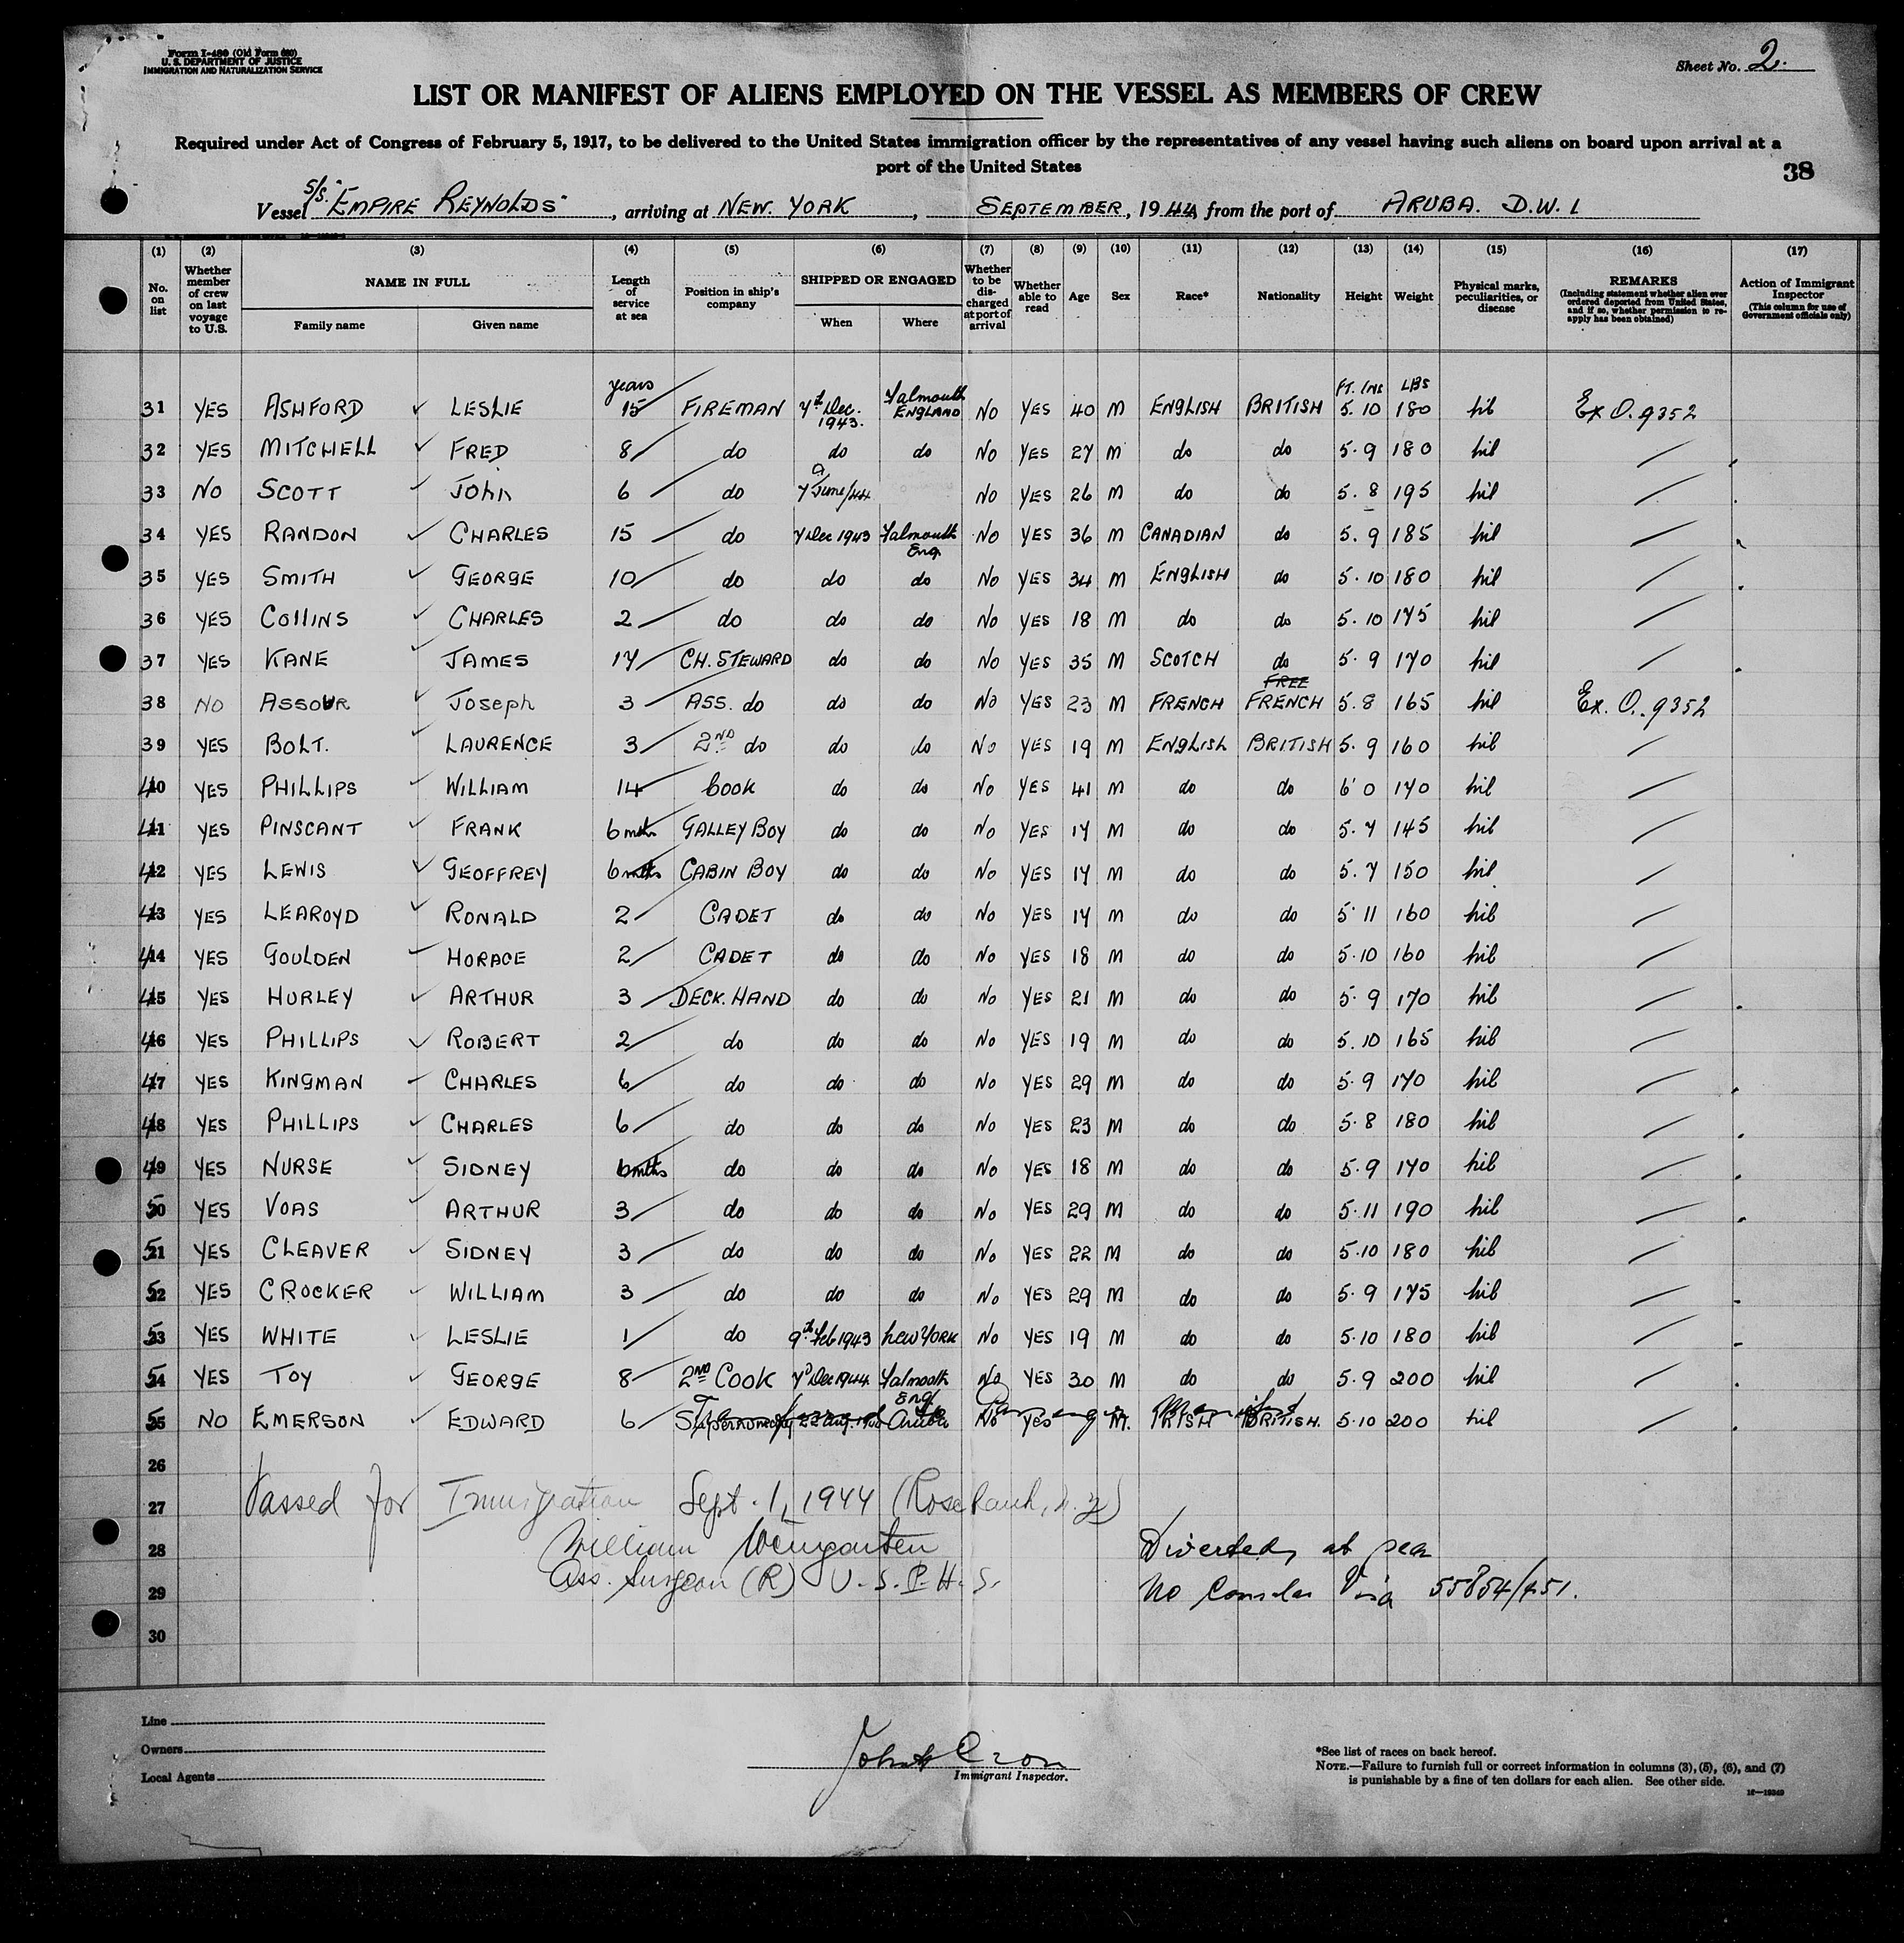 Form I-480 (Old Form 680)
U. S. DEPARTMENT OF JUSTICE
IMMIGRATION AND NATURALIZATION SERVICE
Sheet No. 2.
LIST OR MANIFEST OF ALIENS EMPLOYED ON THE VESSEL AS MEMBERS OF CREW
Required under Act of Congress of February 5, 1917, to be delivered to the United States immigration officer by the representatives of any vessel having such aliens on board upon arrival at a
port of the United States
38
Vessel S/S. "EMPIRE REYNOLDS", arriving at NEW. YORK, SEPTEMBER, 1944, from the port of ARUBA. D.W.I
(1) (2) (3) (4) (5) (6) (7) (8) (9) (10) (11) (12) (13) (14) (15) (16) (17)
No. on list Whether member of crew on last voyage to U.S. NAME IN FULL Family name Given name Length of service at sea Position in ship's company SHIPPED OR ENGAGED When Where Whether to be discharged at port of arrival Whether able to read Age Sex Race* Nationality Height Weight Physical marks, peculiarities, or disease REMARKS (Including statement whether alien ever ordered deported from United States, and if so, whether permission to reapply has been obtained) Action of Immigrant Inspector (This column for use of Government officials only)
years FT. INS LBS
31 YES ASHFORD ✓ LESLIE 15 FIREMAN 7th Dec. 1943. Falmouth ENGLAND NO YES 40 M ENGLISH BRITISH 5.10 180 nil Ex O. 9352
32 YES MITCHELL ✓ FRED 8 do do do NO YES 27 M do do 5.9 180 nil
33 NO SCOTT ✓ JOHN 6 do 7 June/44 NO YES 26 M do do 5.8 195 nil
34 YES RANDON ✓ CHARLES 15 do 7 Dec 1943 Falmouth Eng. NO YES 36 M CANADIAN do 5.9 185 nil
35 YES SMITH ✓ GEORGE 10 do do do NO YES 34 M ENGLISH do 5.10 180 nil
36 YES COLLINS ✓ CHARLES 2 do do do NO YES 18 M do do 5.10 175 nil
37 YES KANE ✓ JAMES 17 CH. STEWARD do do NO YES 35 M SCOTCH do 5.9 170 nil
38 NO ASSOUR ✓ Joseph 3 ASS. do do do NO YES 23 M FRENCH FREE FRENCH 5.8 165 nil Ex. O. 9352
39 YES BOLT. ✓ LAURENCE 3 2ND do do do NO YES 19 M ENGLISH BRITISH 5.9 160 nil
40 YES PHILLIPS ✓ WILLIAM 14 Cook do do NO YES 41 M do do 6'0 170 nil
41 YES PINSCANT ✓ FRANK 6 mths GALLEY BOY do do NO YES 17 M do do 5.7 145 nil
42 YES LEWIS ✓ GEOFFREY 6 mths CABIN BOY do do NO YES 17 M do do 5.7 150 nil
43 YES LEAROYD ✓ RONALD 2 CADET do do NO YES 17 M do do 5.11 160 nil
44 YES GOULDEN ✓ HORACE 2 CADET do do NO YES 18 M do do 5.10 160 nil
45 YES HURLEY ✓ ARTHUR 3 DECK. HAND do do NO YES 21 M do do 5.9 170 nil
46 YES PHILLIPS ✓ ROBERT 2 do do do NO YES 19 M do do 5.10 165 nil
47 YES KINGMAN ✓ CHARLES 6 do do do NO YES 29 M do do 5.9 170 nil
48 YES PHILLIPS ✓ CHARLES 6 do do do NO YES 23 M do do 5.8 180 nil
49 YES NURSE ✓ SIDNEY 6 mths do do do NO YES 18 M do do 5.9 170 nil
50 YES VOAS ✓ ARTHUR 3 do do do NO YES 29 M do do 5.11 190 nil
51 YES CLEAVER ✓ SIDNEY 3 do do do NO YES 22 M do do 5.10 180 nil
52 YES CROCKER ✓ WILLIAM 3 do do do NO YES 29 M do do 5.9 175 nil
53 YES WHITE ✓ LESLIE 1 do 9th Feb 1943 New YORK NO YES 19 M do do 5.10 180 nil
54 YES TOY ✓ GEORGE 8 2ND COOK 7 Dec 1944 Falmouth Eng. NO YES 30 M do do 5.9 200 nil
55 NO EMERSON ✓ EDWARD 6 Supernumerary 22 Aug. Aruba No Yes M. IRISH BRITISH. 5.10 200 nil
26
27 Passed for Immigration Sept. 1, 1944 (Rosebank, N.Y)
28 William Weingarten Diverted at sea
29 Ass. Surgeon (R) U.S.P.H.S. No Consular Visa 55854/451.
30
Line
Owners
Local Agents
John Cron
Immigrant Inspector.
*See list of races on back hereof.
NOTE.—Failure to furnish full or correct information in columns (3), (5), (6), and (7)
is punishable by a fine of ten dollars for each alien. See other side.